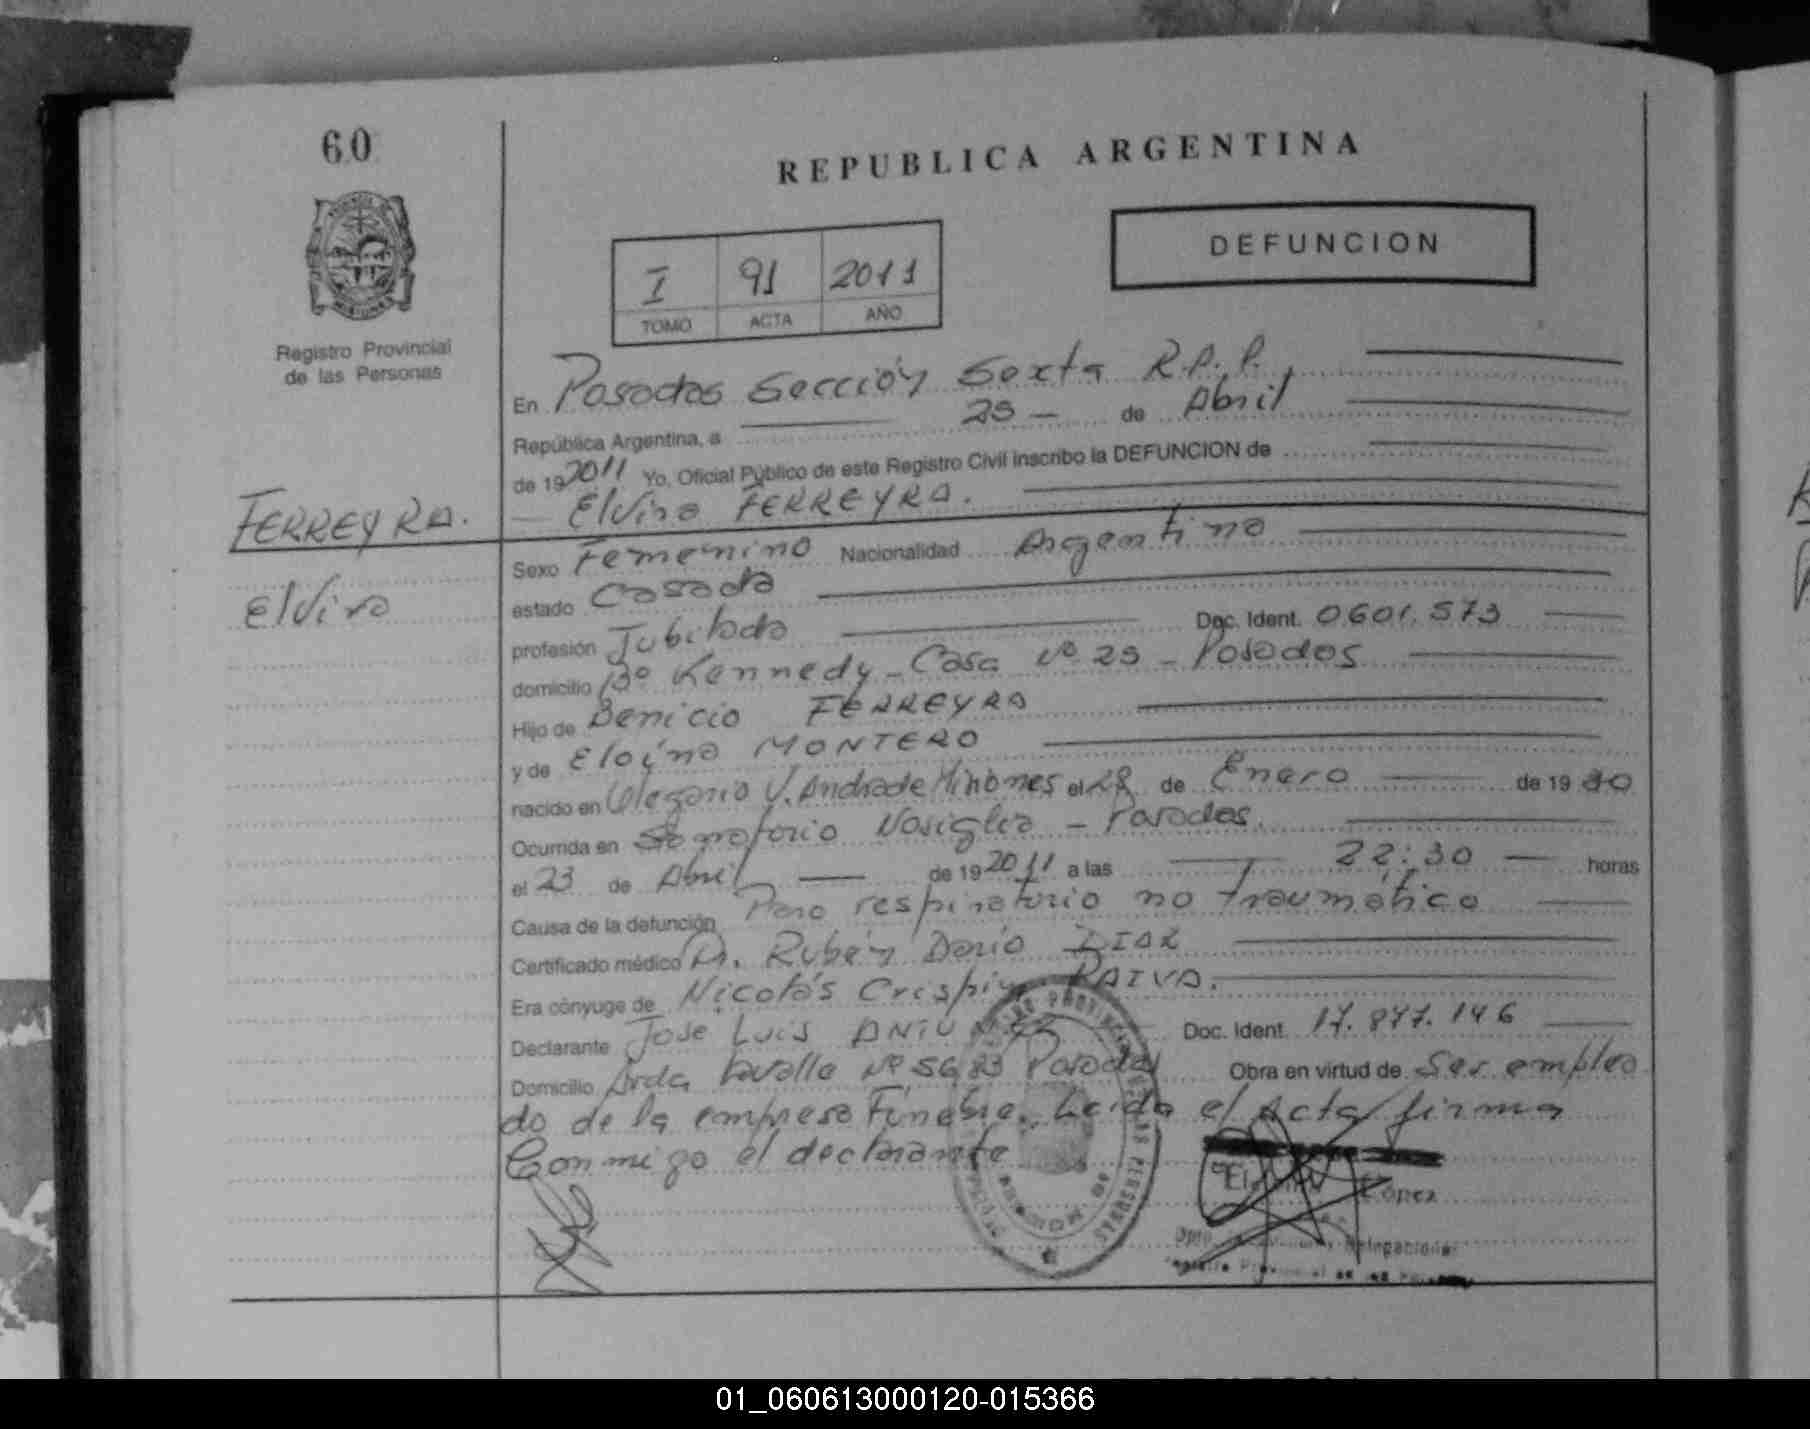 60
REPUBLICA ARGENTINA
DEFUNCION
I 91 2011
TOMO ACTA AÑO
Registro Provincial
de las Personas
En Posadas Sección Sexta R.P.P.
República Argentina, a 25 - de Abril
de 19 2011 Yo, Oficial Público de este Registro Civil inscribo la DEFUNCION de
Elvira FERREYRA.
FERREYRA.
Elvira
Sexo Femenino Nacionalidad Argentina
estado Casada
profesión Jubilada Doc. Ident. 0601.573
domicilio Bº Kennedy - Casa Nº 25 - Posadas
Hijo de Benicio FERREYRA
y de Eloína MONTERO
nacido en Olegario V. Andrade Misiones el 28 de Enero de 19
Ocurrida en Sanatorio Nosiglia - Posadas.
el 23 de Abril de 19 2011 a las 22:30 horas
Causa de la defunción Paro respiratorio no traumático
Certificado médico Dr. Rubén Darío DIAZ
Era cónyuge de Nicolás Crispín PAIVA.
Declarante Jose Luis Doc. Ident. 17.877.146
Domicilio Avda Lavalle Nº 5683 Posadas Obra en virtud de Ser emplea
do de la empresa Fúnebre. Leida el Acta firma
Conmigo el declarante
López
01_060613000120-015366